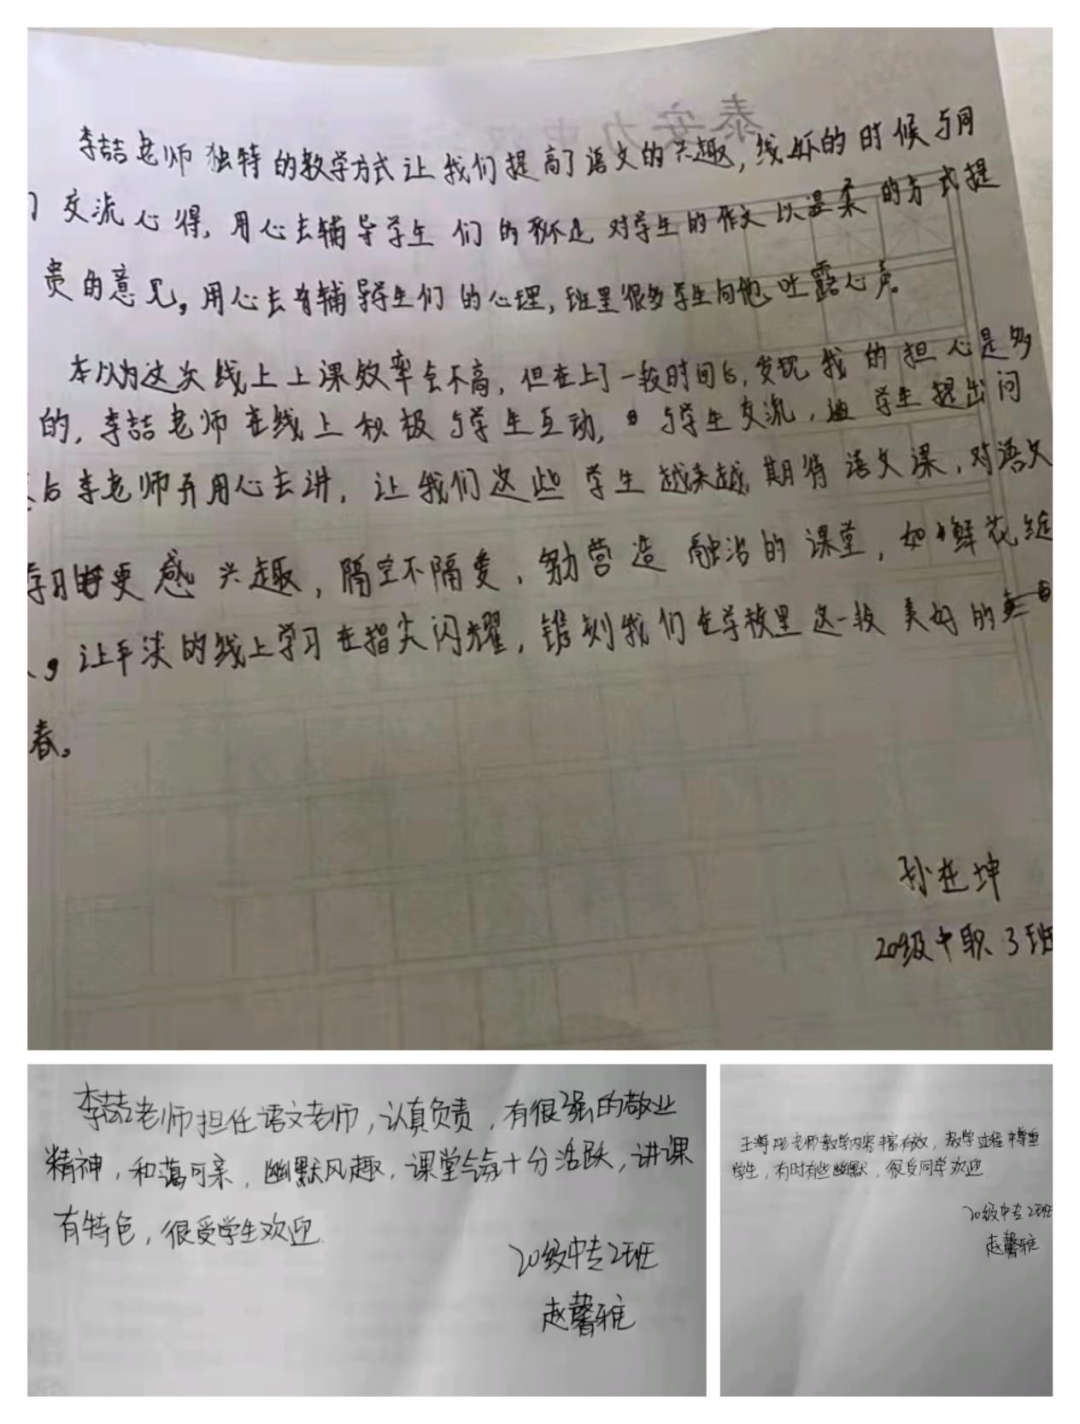 李喆老师独特的教学方式让我们提高了语文的兴趣，线下的时候与同
交流心得，用心去辅导学生们的不足 对学生的作文以温柔的方式提
贵的意见。用心去辅导学生们的心理，班里很多学生向他吐露心声。
本以为这次线上上课效率会不高，但在上了一段时间后，发现我的担心是多
的，李喆老师在线上积极与学生互动，与学生交流，学生提出问
后李老师并用心去讲，让我们这些学生越来越期待语文课，对语文
学习更感兴趣，隔空不隔爱，营造融洽的课堂，如鲜花绽
，让平淡的线上学习在指尖闪耀，镌刻我们在学校里这一段美好的
春。
孙在坤
20级中职3班
李喆老师担任语文老师，认真负责，有很强的敬业
精神，和蔼可亲，幽默风趣，课堂气氛十分活跃，讲课
有特色，很受学生欢迎
20级中专2班
赵馨雅
老师教学内容丰富有效，教学过程中尊重
学生，有时有些幽默，很受同学欢迎
20级中专2班
赵馨雅